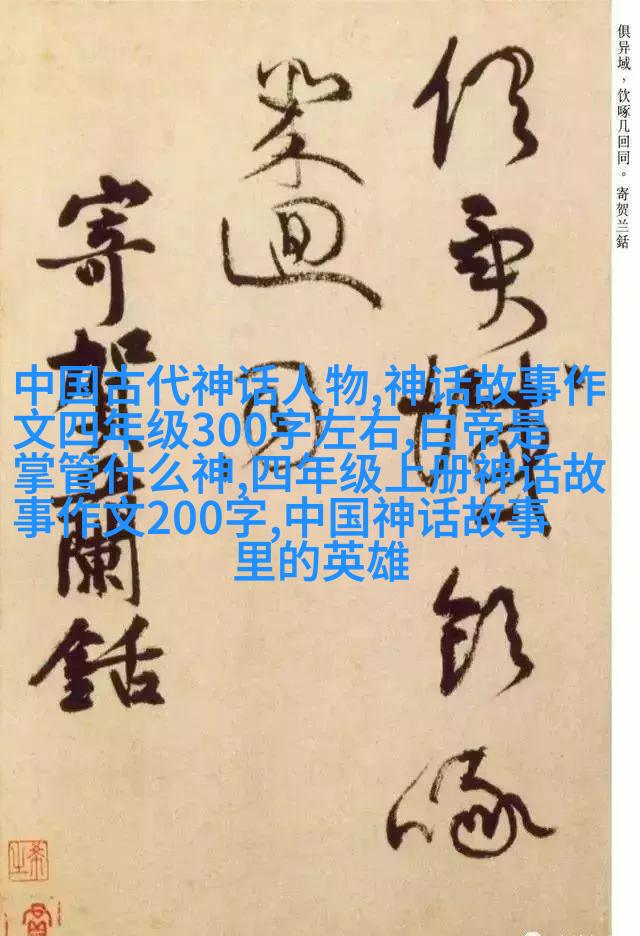 俱异域，饮啄几回同。寄贺兰銛
俱異域飲啄
幾迴同
寄賀蘭銛
中国古代神话人物,神话故事作
文四年级300字左右,白帝是
掌管什么神,四年级上册神话故
事作文200字,中国神话故事
里的英雄